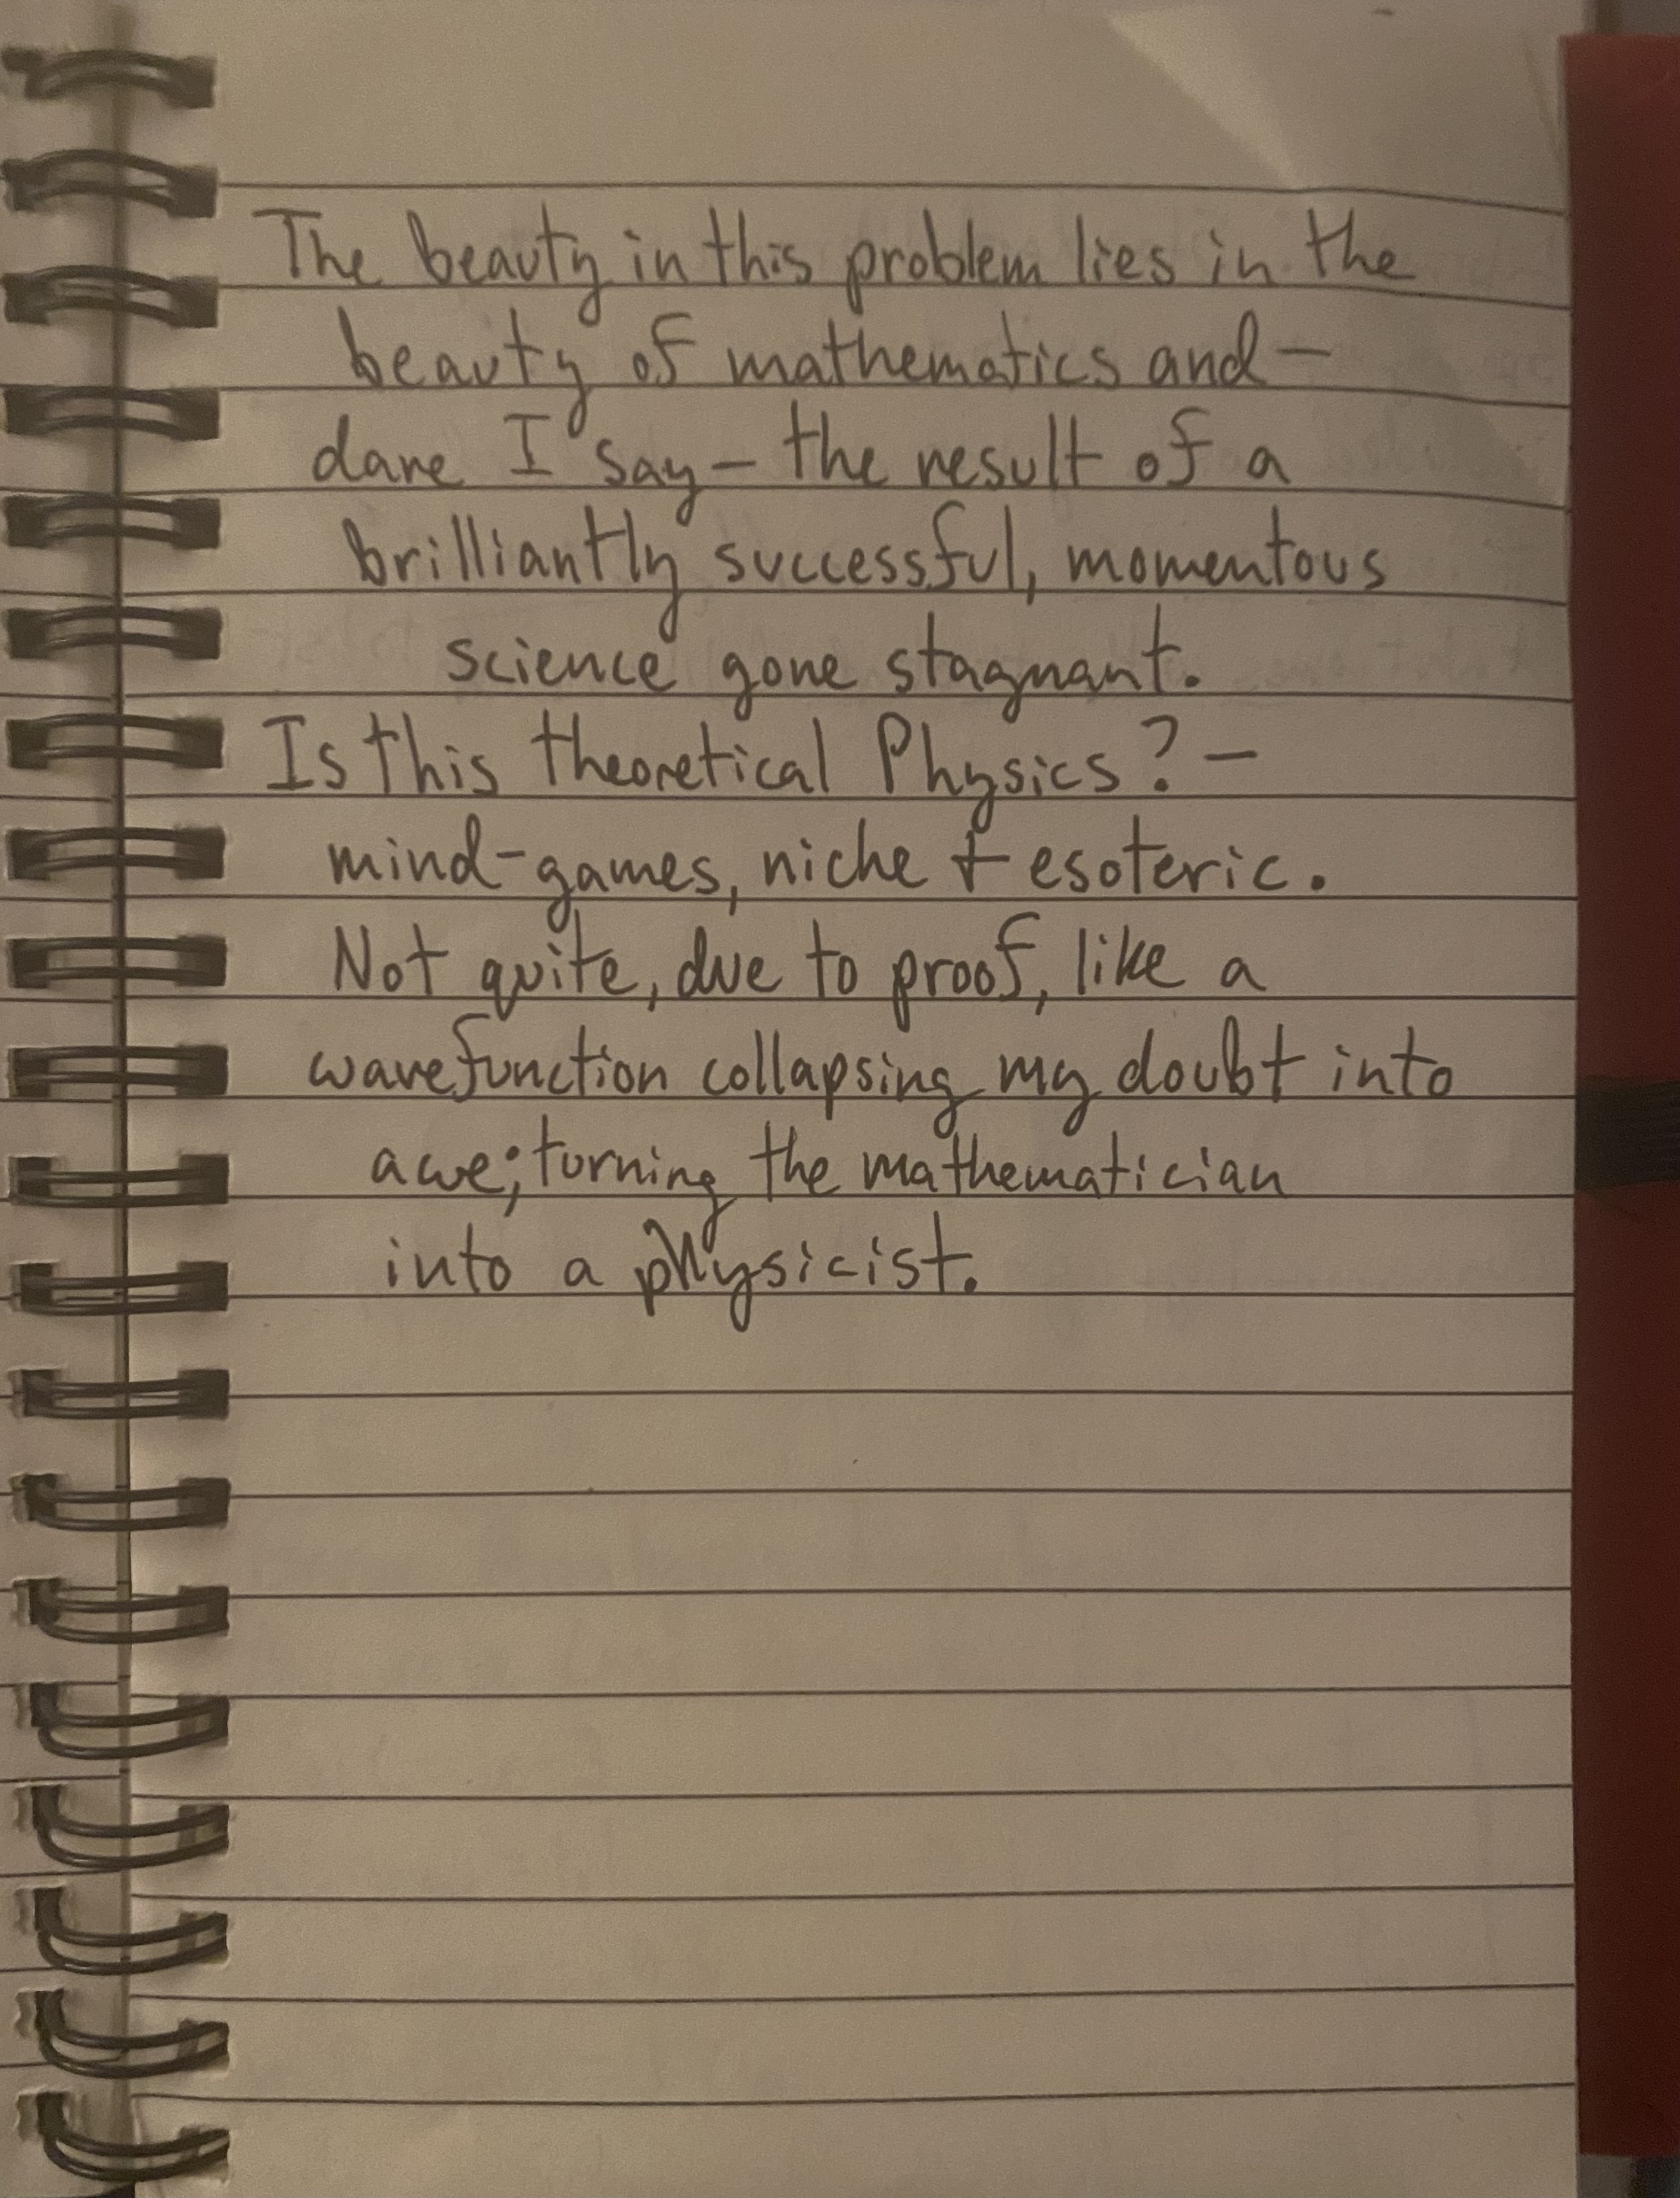 The beauty in this problem lies in the
beauty of mathematics and —
dare I say — the result of a
brilliantly successful, momentous
science gone stagnant.
Is this theoretical Physics? —
mind-games, niche + esoteric.
Not quite, due to proof, like a
wavefunction collapsing my doubt into
awe; turning the mathematician
into a physicist.